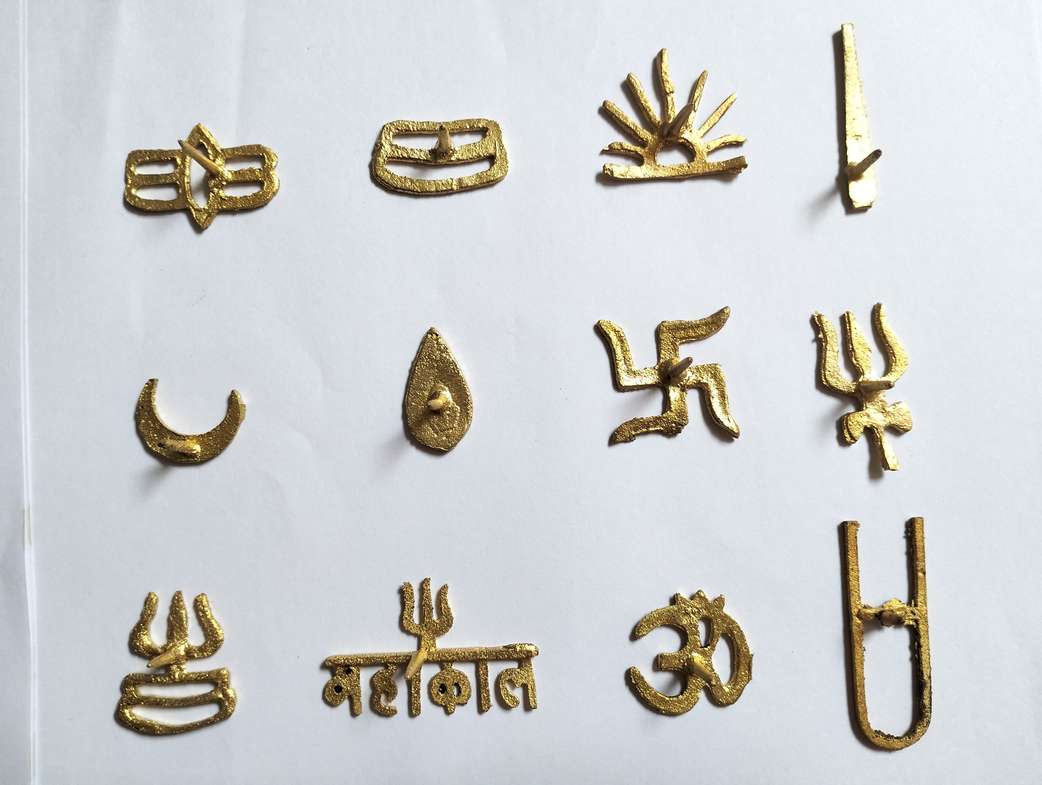 महाकाल
ॐ